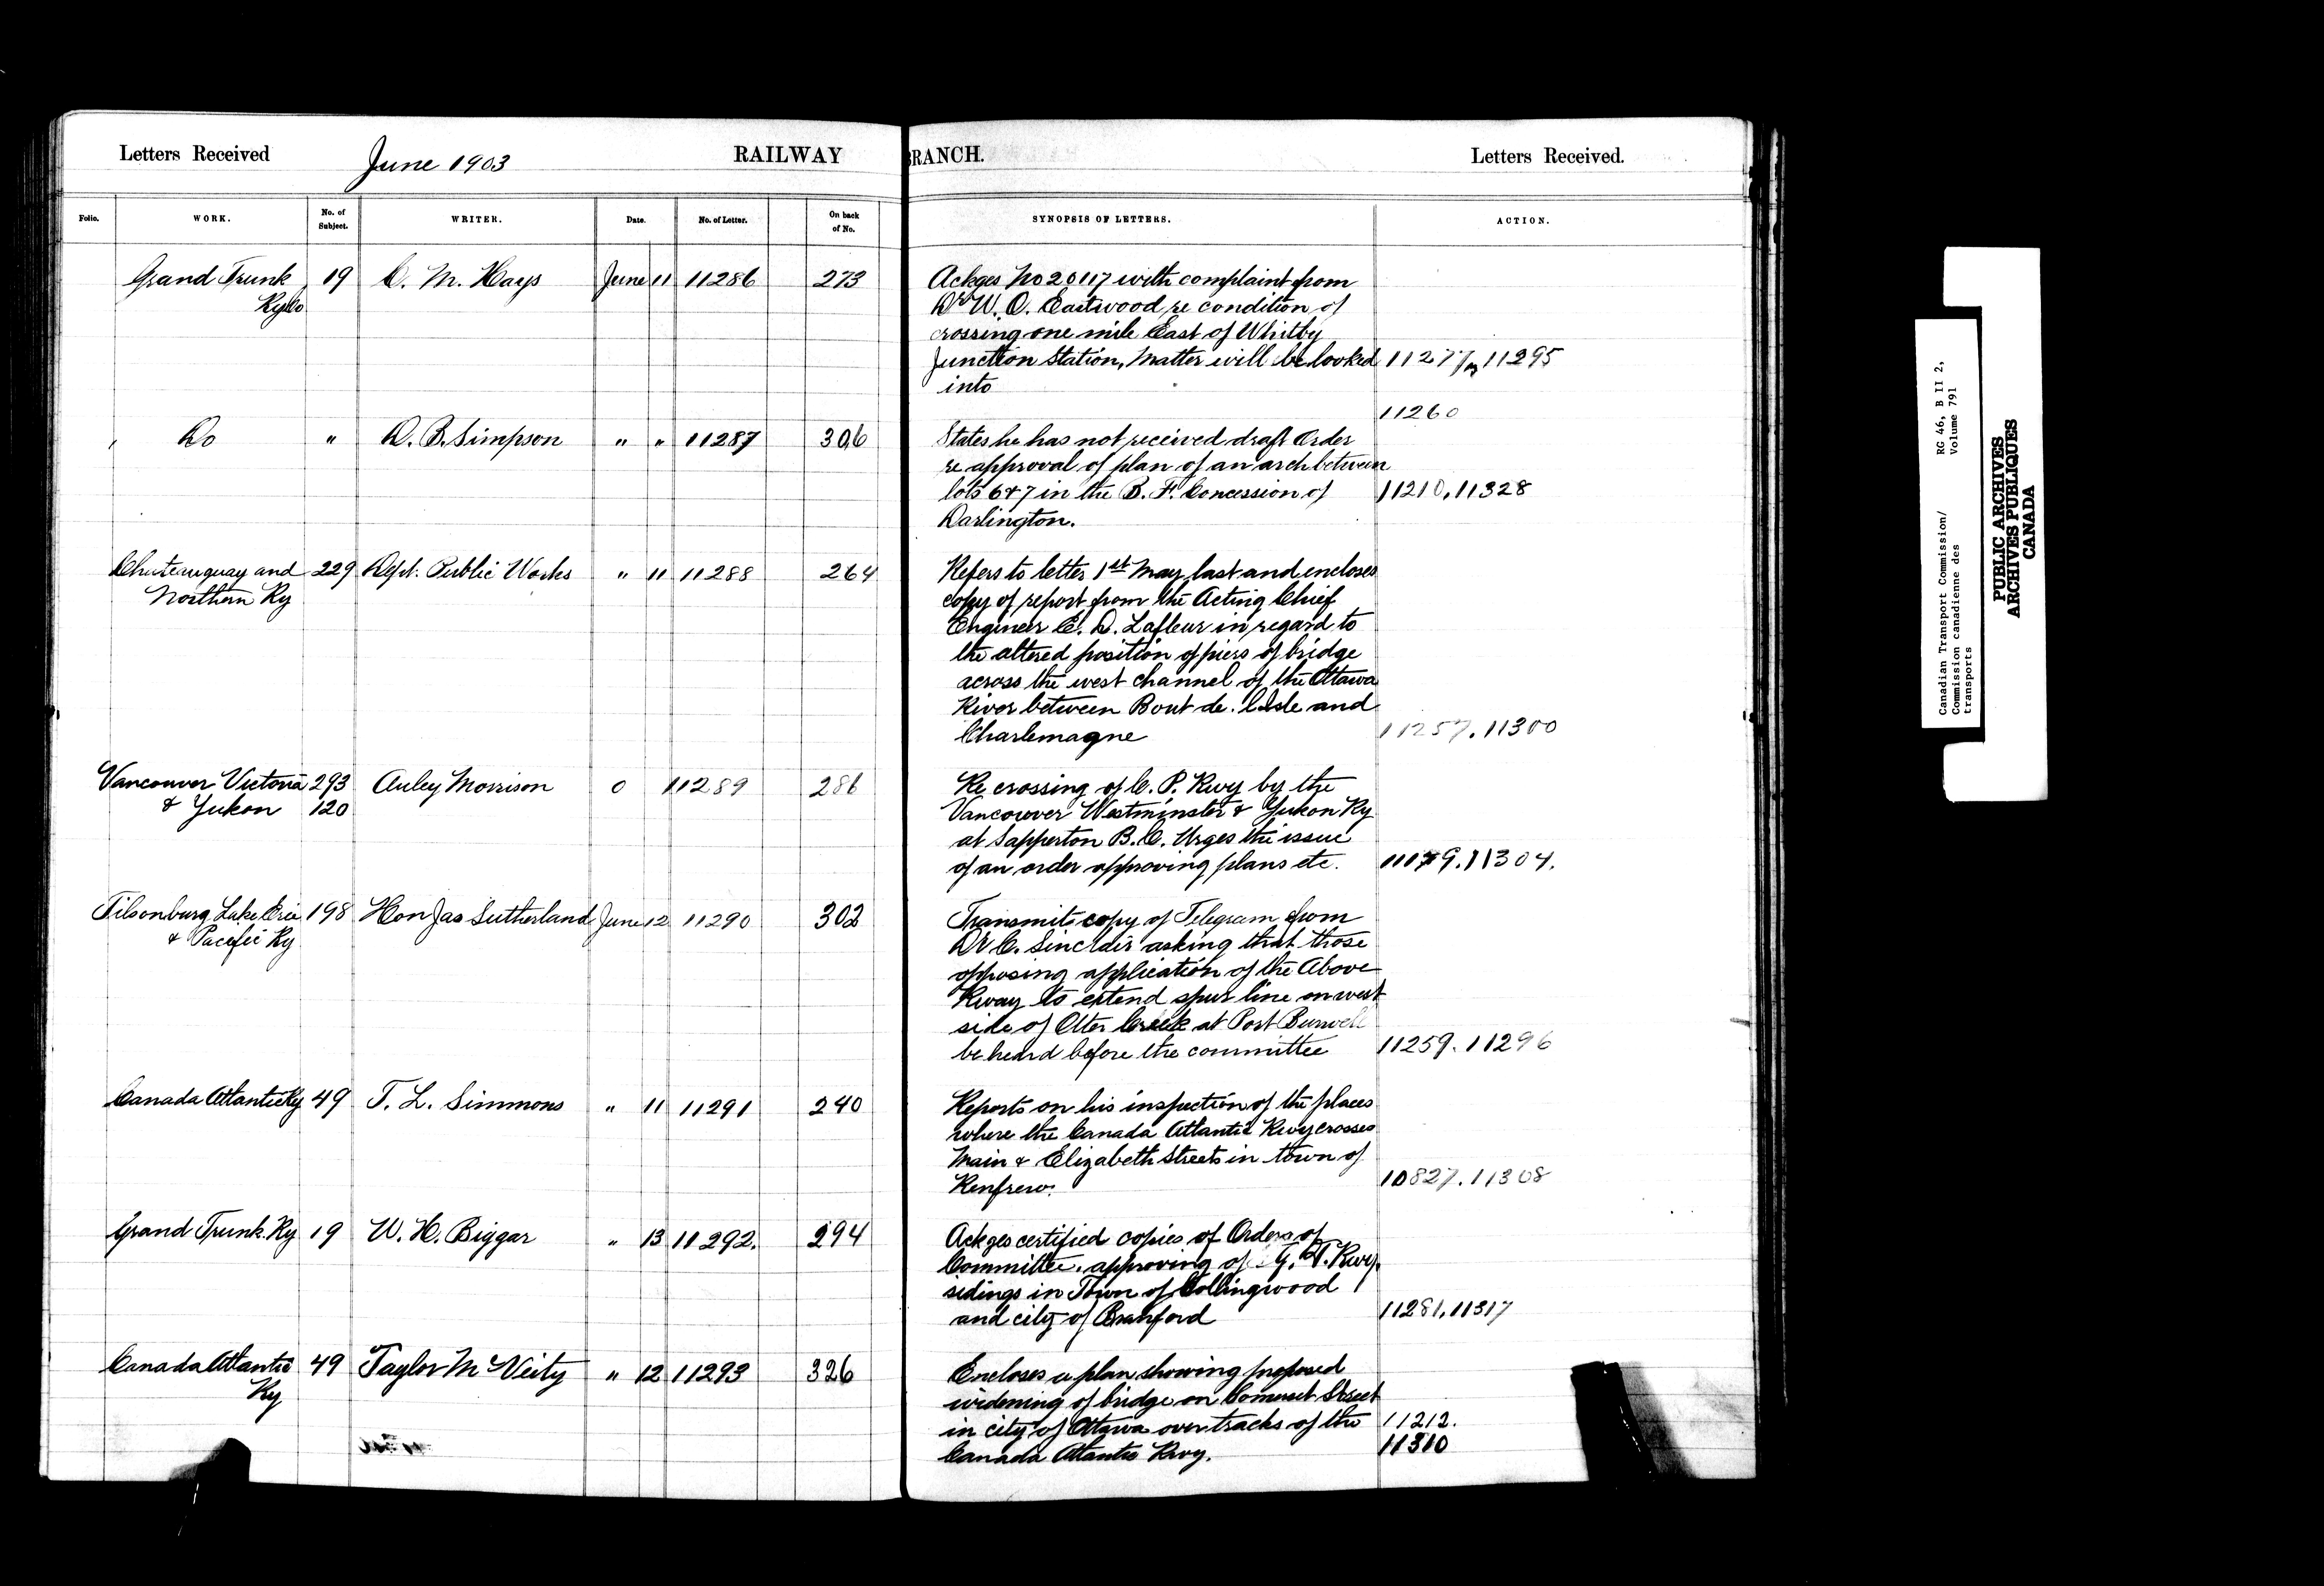 Letters Received June 1903 RAILWAY BRANCH. Letters Received.
Folio. WORK. No. of Subject. WRITER. Date. No. of Letter. On back of No. SYNOPSIS OF LETTERS. ACTION.
Grand Trunk 19 C. M. Hays June 11 11286 273 Ackges No 20117 with complaint from
Ry Co Dr W. O. Eastwood re condition of
crossing one mile East of Whitby
Junction Station, Matter will be looked 11277 11295
into
11260
Do " D. B. Simpson " " 11287 306 States he has not received draft Order
re approval of plan of an arch between
lots 6 & 7 in the B. F. Concession of 11210, 11328
Darlington.
Chateauguay and 229 Dept. Public Works " 11 11288 264 Refers to letter 1st May last and encloses
Northern Ry copy of report from the Acting Chief
Engineer E. D. Lafleur in regard to
the altered position of piers of bridge
across the west channel of the Ottawa
River between Bout de. l'Isle and
Charlemagne 11257. 11300
Vancouver Victoria 293 Auley Morrison 0 11289 286 Re crossing of C. P. Rwy by the
& Yukon 120 Vancouver Westminster & Yukon Ry
at Sapperton B. C. Urges the issue
of an order approving plans etc. 11179. 11304.
Tilsonburg Lake Erie 198 Hon Jas Sutherland June 12 11290 302 Transmits copy of Telegram from
& Pacific Ry Dr C. Sinclair asking that those
opposing application of the Above
Rway to extend spur line on west
side of Otter Creek at Port Burwell
be heard before the committee 11259. 11296
Canada Atlantic Ry 49 T. L. Simmons " 11 11291 240 Reports on his inspection of the places
where the Canada Atlantic Rwy crosses
Main & Elizabeth Streets in town of
Renfrew. 10827. 11308
Grand Trunk Ry 19 W. H. Biggar " 13 11292. 294 Ackges certified copies of Orders of
Committee. approving of G. T. Rwy.
sidings in Town of Collingwood
and city of Branford 11281, 11317
Canada Atlantic 49 Taylor McVeity " 12 11293 326 Encloses a plan showing proposed
Ry widening of bridge on Somerset Street
in city of Ottawa over tracks of the 11212.
Canada Atlantic Rwy. 11310
Canadian Transport Commission/ RG 46, B II 2,
Commission canadienne des Volume 791
transports
PUBLIC ARCHIVES
ARCHIVES PUBLIQUES
CANADA